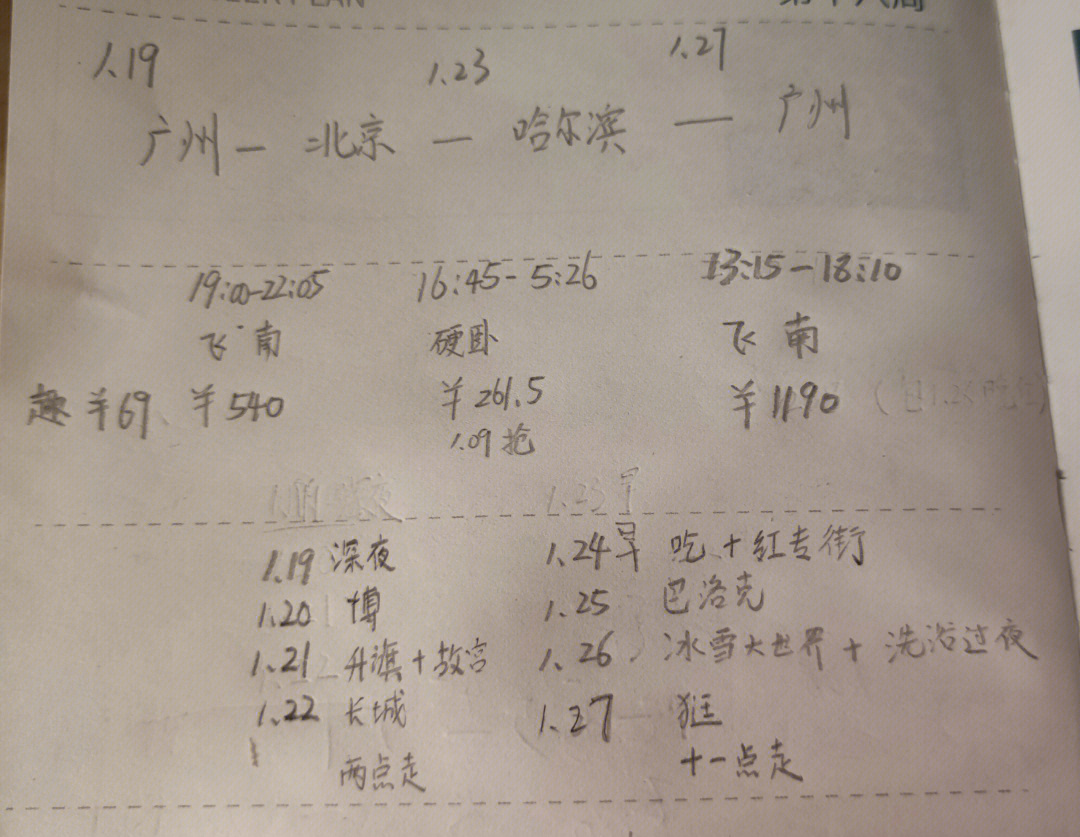 PLAN
1.19 1.23 1.27
广州 — 北京 — 哈尔滨 — 广州
19:00-22:05 16:45-5:26 13:15-18:10
飞 南 硬卧 飞 南
趣 ¥69 ¥540 ¥261.5 ¥1190
1.09 抢
1.23早
1.19 深夜 1.24早 吃+红专街
1.20 博 1.25 巴洛克
1.21 升旗+故宫 1.26 冰雪大世界+洗浴过夜
1.22 长城 1.27 逛
两点走 十一点走